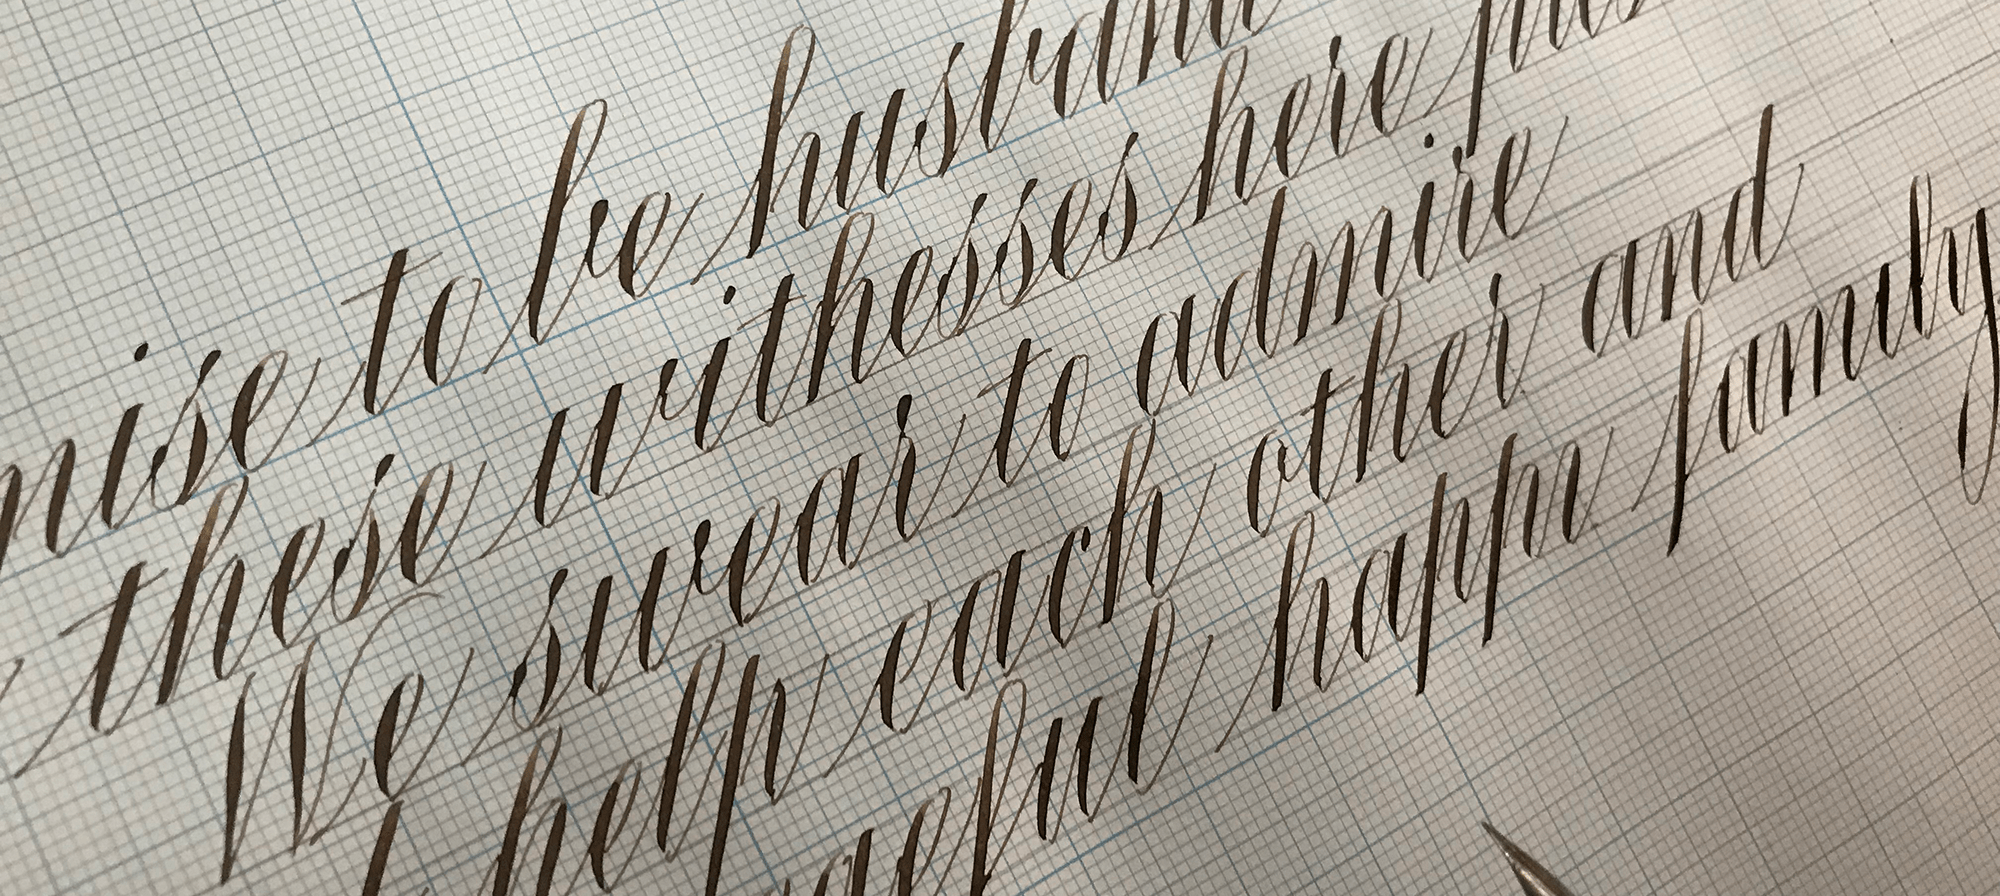 mise to be husband
these withesses here
We swear to admire
help each other and
aceful happy family